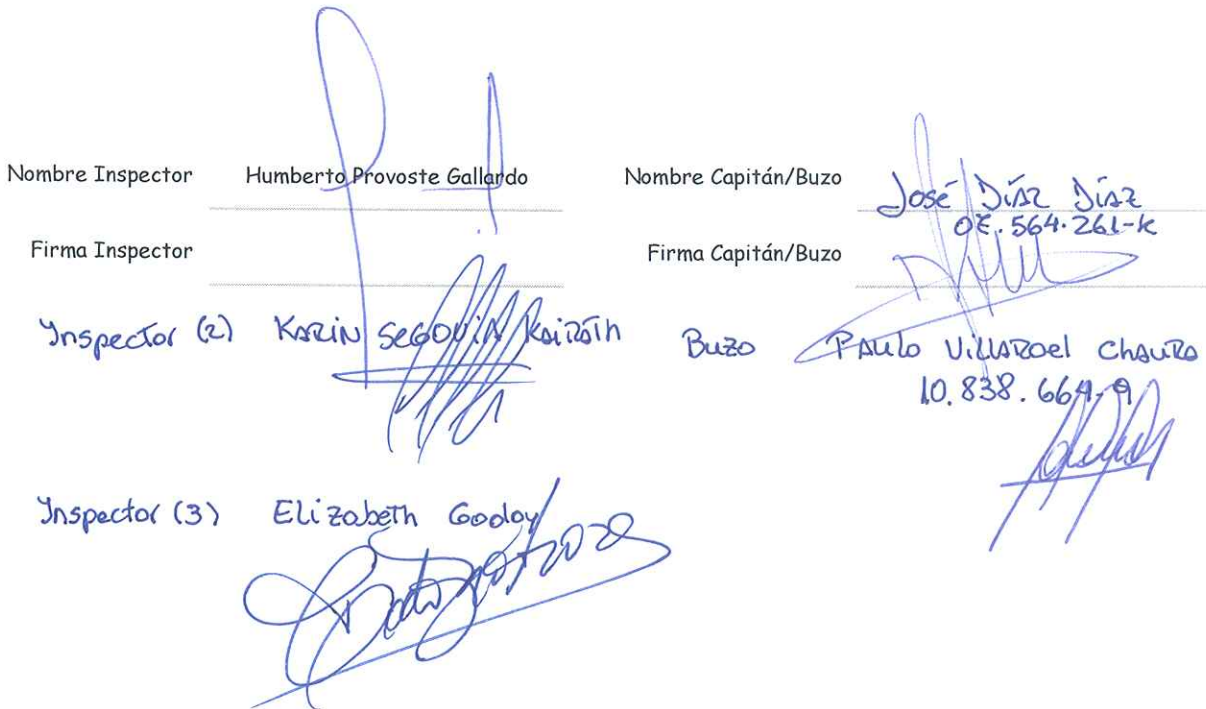 Nombre Inspector Humberto Provoste Gallardo
Nombre Capitán/Buzo José Díaz Díaz
564.261-K
Firma Inspector
Firma Capitán/Buzo
Inspector (2) KARIN SEGOVIA
Buzo PAULO VILLAROEL CHAURA
10.838.664-9
Inspector (3) ELizabeth Godoy